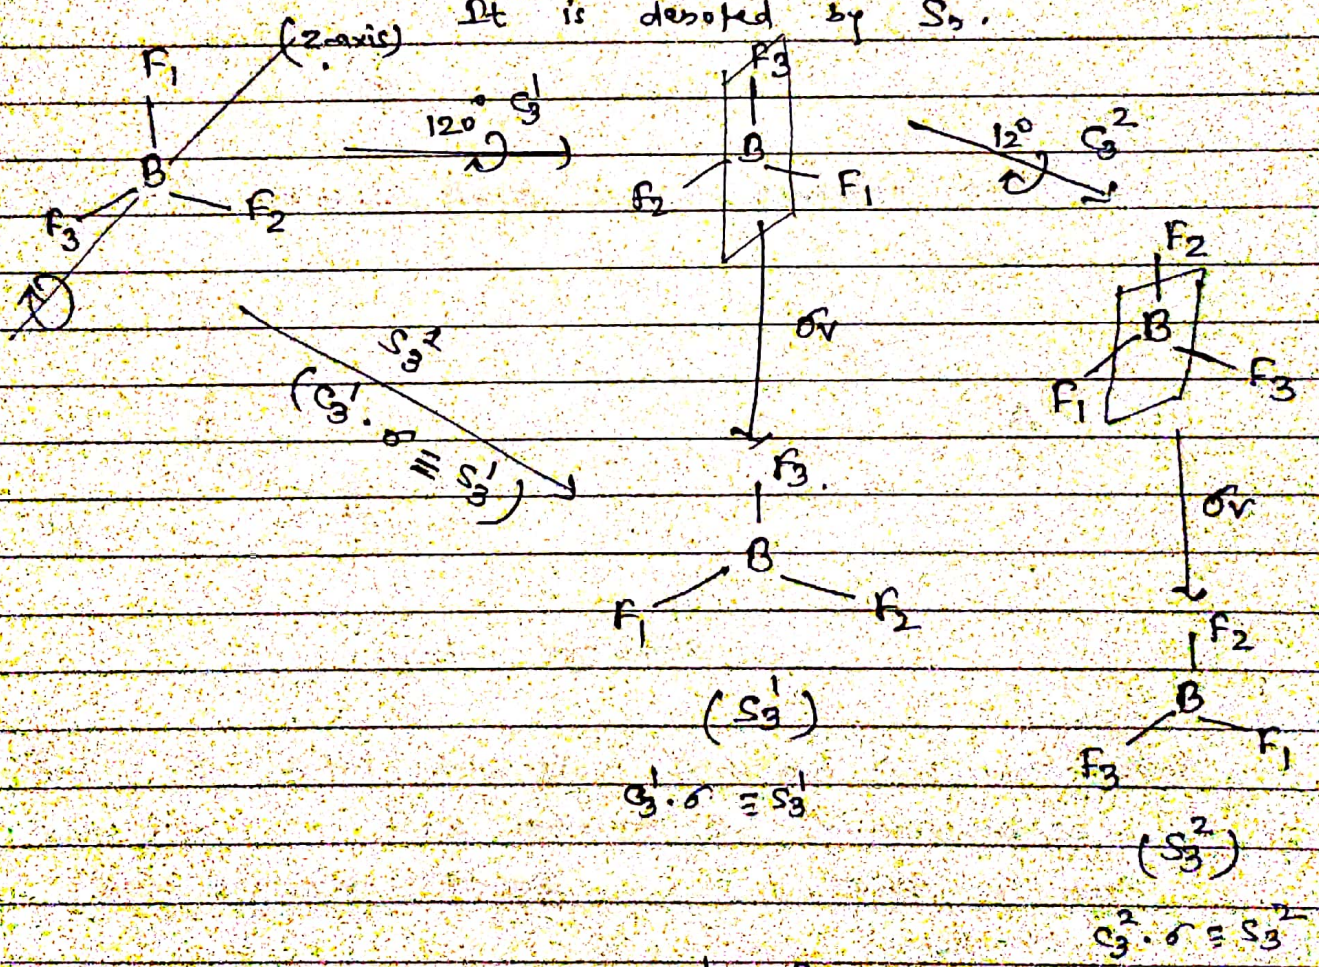 It is denoted by Sn.
(z-axis)
F1
B
F3 F2
120 C3^1
F3
B
F2 F1
120 C3^2
F2
B
F1 F3
S3^2
(C3^1 . σ ≡ S3^1)
σv
F3.
B
F1 F2
(S3^1)
C3^1 . σ ≡ S3^1
σv
F2
B
F3 F1
(S3^2)
C3^2 . σ ≡ S3^2